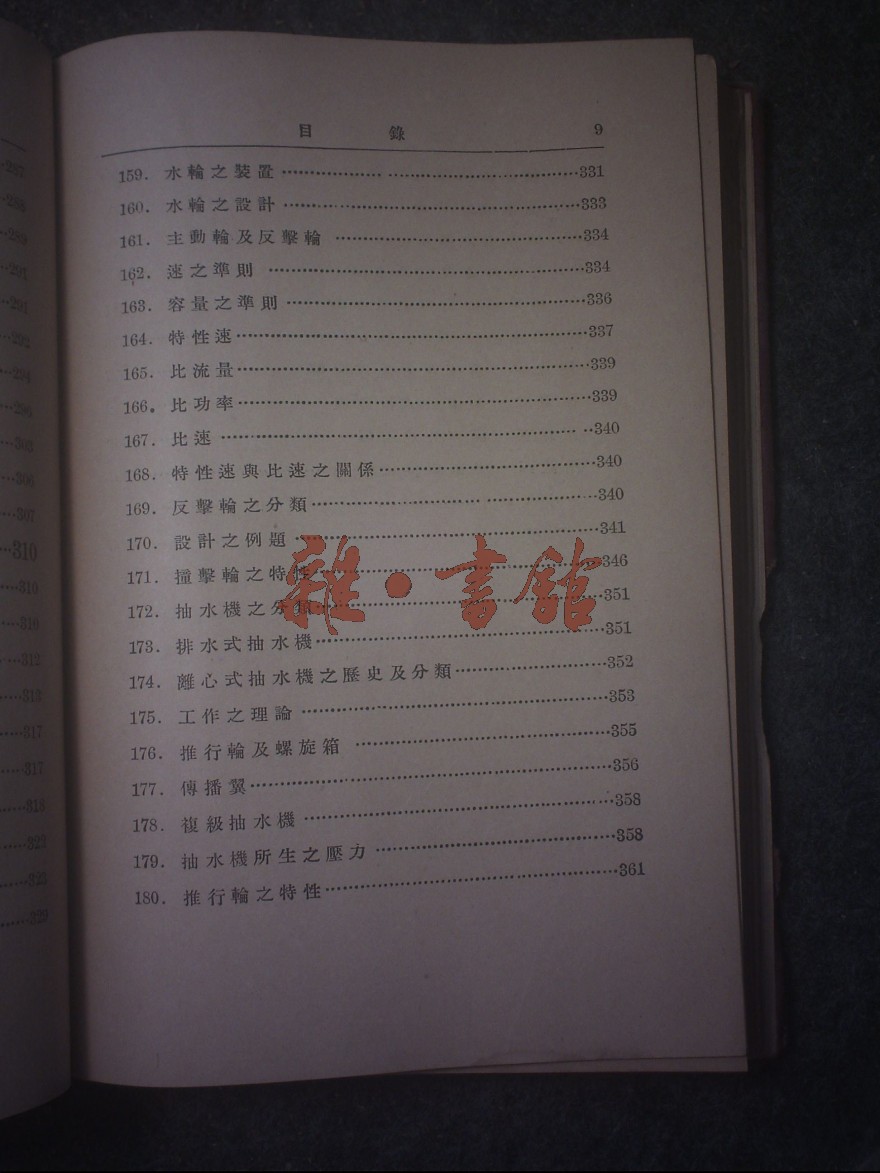 目 錄 9
159. 水輪之裝置 331
160. 水輪之設計 333
161. 主動輪及反擊輪 334
162. 速之準則 334
163. 容量之準則 336
164. 特性速 337
165. 比流量 339
166. 比功率 339
167. 比速 340
168. 特性速與比速之關係 340
169. 反擊輪之分類 340
170. 設計之例題 341
171. 撞擊輪之特性 346
172. 抽水機之分類 351
173. 排水式抽水機 351
174. 離心式抽水機之歷史及分類 352
175. 工作之理論 353
176. 推行輪及螺旋箱 355
177. 傳播翼 356
178. 複級抽水機 358
179. 抽水機所生之壓力 358
180. 推行輪之特性 361
雜·書館
287
288
289
291
291
292
294
306
307
310
310
310
312
317
317